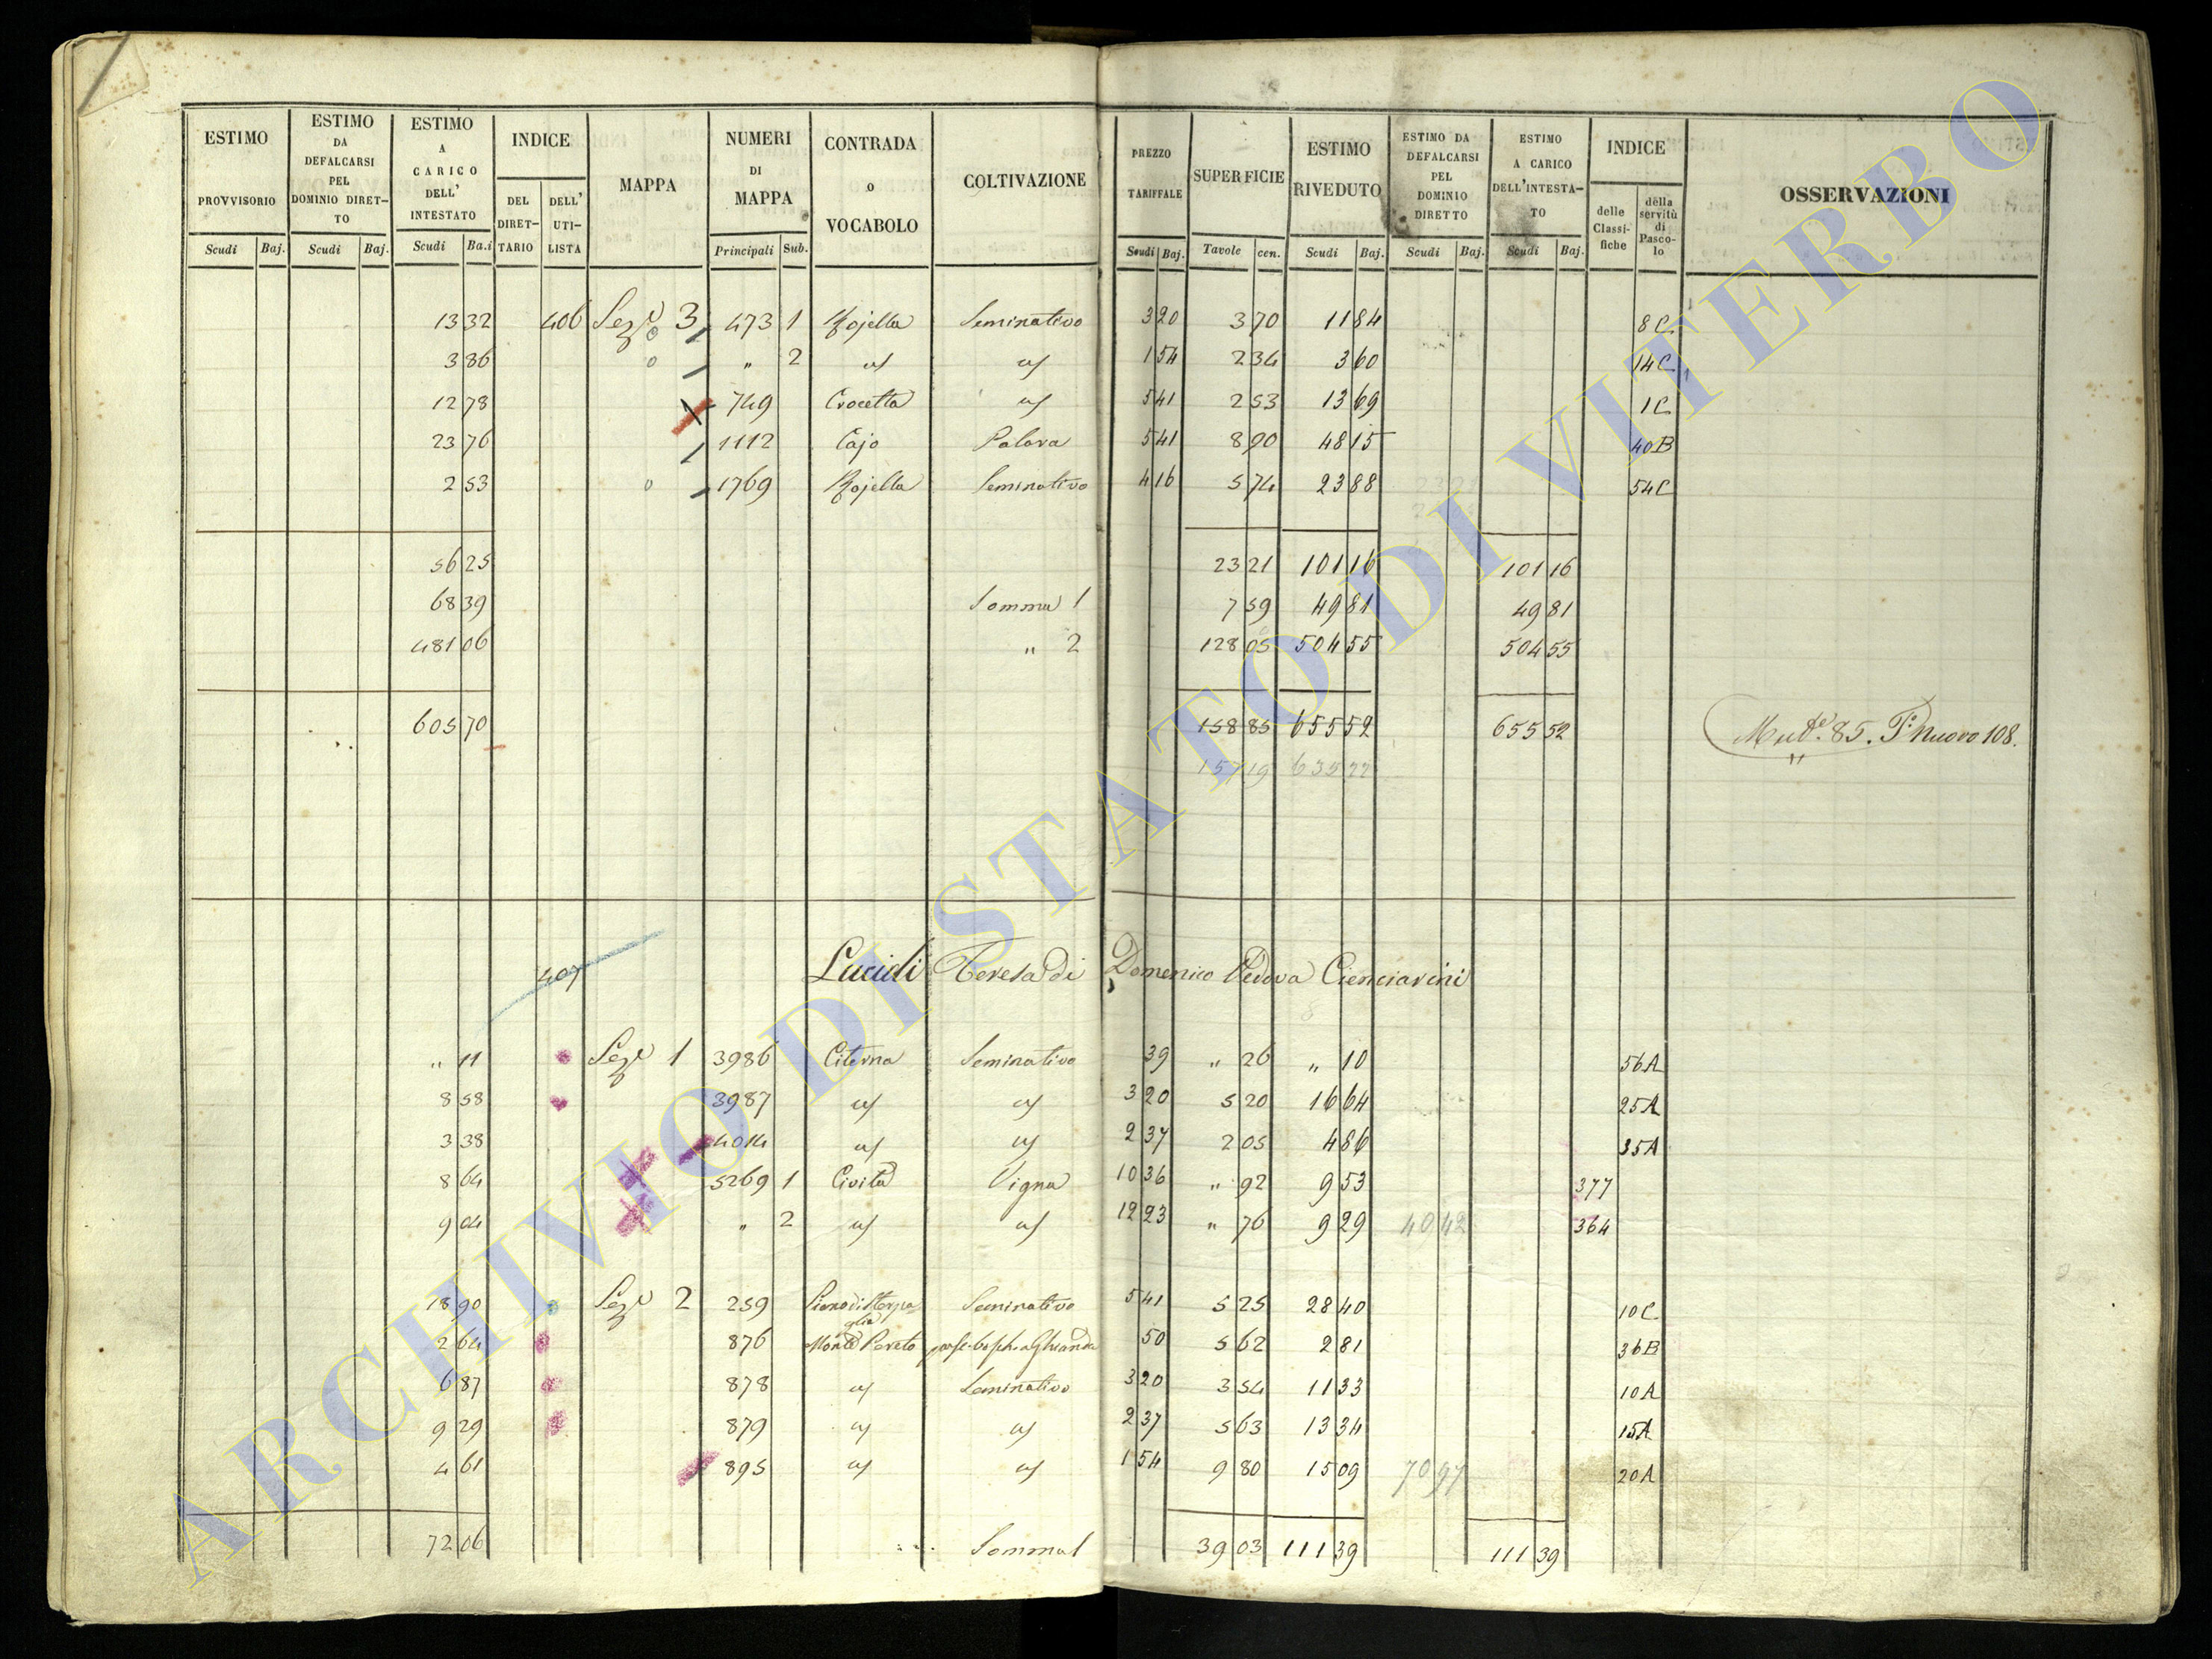 ESTIMO PROVVISORIO Scudi Baj. ESTIMO DA DEFALCARSI PEL DOMINIO DIRETTO Scudi Baj. ESTIMO A CARICO DELL' INTESTATO Scudi Ba.i INDICE DEL DIRETTARIO DELL' UTILISTA MAPPA NUMERI DI MAPPA Principali Sub. CONTRADA O VOCABOLO COLTIVAZIONE PREZZO TARIFFALE Scudi Baj. SUPERFICIE Tavole cen. ESTIMO RIVEDUTO Scudi Baj. ESTIMO DA DEFALCARSI PEL DOMINIO DIRETTO Scudi Baj. ESTIMO A CARICO DELL'INTESTATO Scudi Baj. INDICE delle Classifiche della servitù di Pascolo OSSERVAZIONI
13 32 406 Sez.e 3 473 1 Rojella Seminativo 3 20 3 70 11 84 8C
3 86 " 2 1 54 2 34 3 60 14C
12 78 749 Crocetta 5 41 2 53 13 69 1C
23 76 1112 Cajo 5 41 8 90 48 15 40B
2 53 1769 Rojella Seminativo 4 16 5 74 23 88 54C
56 25 23 21 101 16 101 16
68 39 Somma 1 7 59 49 81 49 81
481 06 " 2 128 05 504 55 504 55
605 70 158 85 655 52 655 52 85. Nuovo 108.
157 19 635 22
407 Lucidi Teresa di Domenico Vedova Cienciarini
" 11 Sez.e 1 3986 Citerna Seminativo 39 " 26 " 10 56A
8 58 3987 3 20 5 20 16 64 25A
3 38 4014 2 37 2 05 4 86 35A
8 64 5269 1 Civita Vigna 10 36 " 92 9 53 377
9 04 " 2 12 23 " 76 9 29 40 42 364
18 90 Sez.e 2 259 Piano di Sterpaglia Seminativo 5 41 5 25 28 40 10C
2 64 876 Monte Pereto 50 5 62 2 81 36B
6 87 878 Seminativo 3 20 3 54 11 33 10A
9 29 879 2 37 5 63 13 34 15A
4 61 895 1 54 9 80 15 09 70 97 20A
72 06 Somma 1 39 03 111 39 111 39
ARCHIVIO DI STATO DI VITERBO